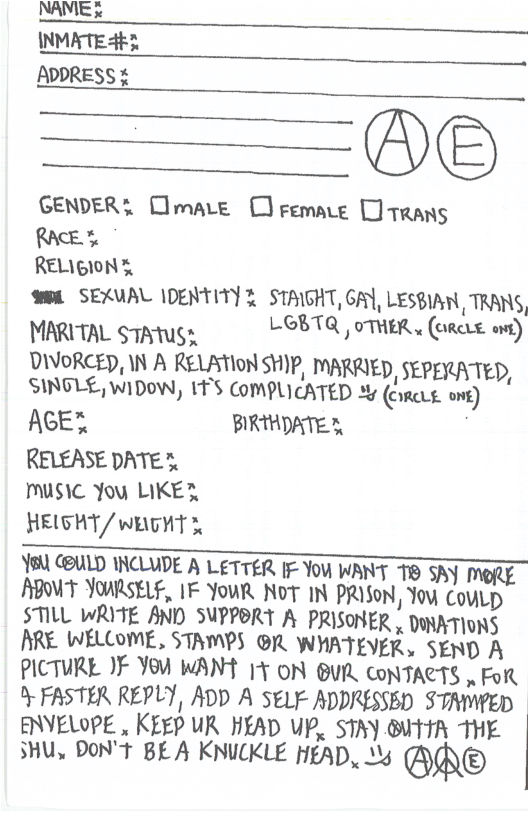 NAME:
INMATE#:
ADDRESS:
A E
GENDER: MALE FEMALE TRANS
RACE:
RELIGION:
SEXUAL IDENTITY: STAIGHT, GAY, LESBIAN, TRANS,
LGBTQ, OTHER. (CIRCLE ONE)
MARITAL STATUS:
DIVORCED, IN A RELATIONSHIP, MARRIED, SEPERATED,
SINGLE, WIDOW, IT'S COMPLICATED (CIRCLE ONE)
AGE: BIRTHDATE:
RELEASE DATE:
MUSIC YOU LIKE:
HEIGHT/WEIGHT:
YOU COULD INCLUDE A LETTER IF YOU WANT TO SAY MORE
ABOUT YOURSELF. IF YOUR NOT IN PRISON, YOU COULD
STILL WRITE AND SUPPORT A PRISONER. DONATIONS
ARE WELCOME. STAMPS OR WHATEVER. SEND A
PICTURE IF YOU WANT IT ON OUR CONTACTS. FOR
A FASTER REPLY, ADD A SELF ADDRESSED STAMPED
ENVELOPE. KEEP UR HEAD UP. STAY OUTTA THE
SHU. DON'T BE A KNUCKLE HEAD. A E